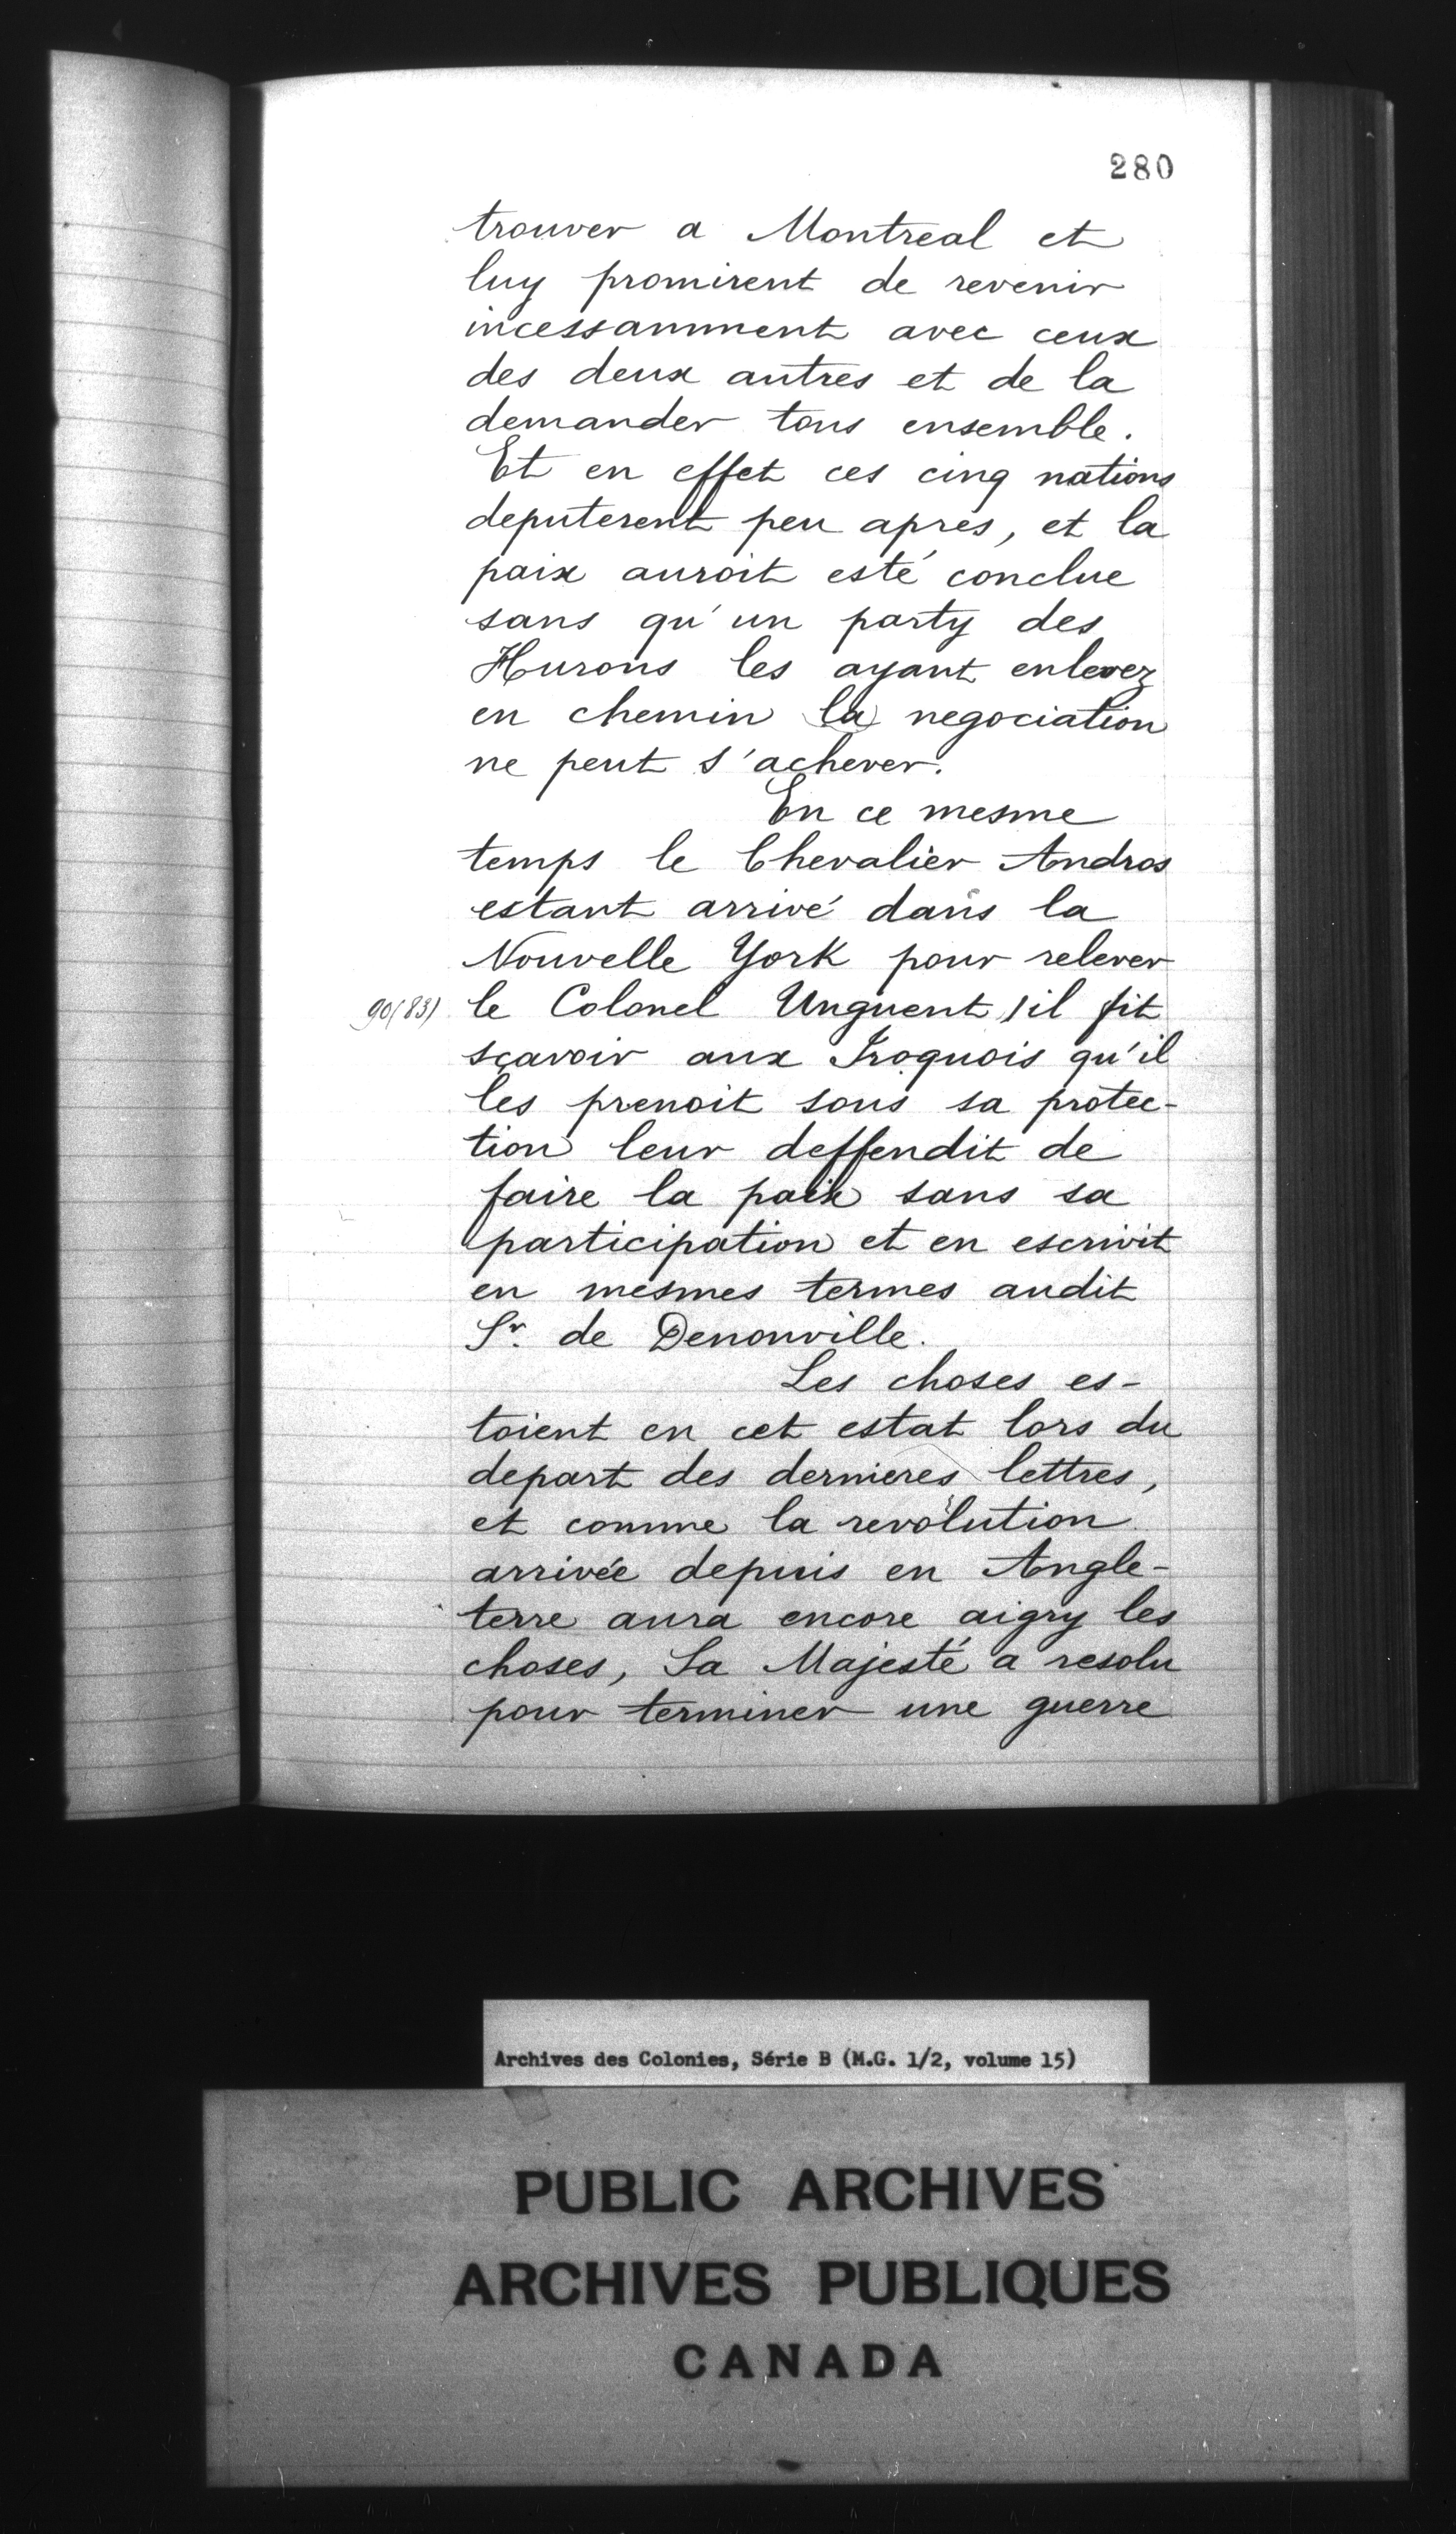 280
trouver a Montreal et
luy promirent de revenir
incessamment avec ceux
des deux autres et de la
demander tous ensemble.
Et en effet ces cinq nations
deputerent peu apres, et la
paix auroit esté conclue
sans qu'un party des
Hurons les ayant enlevez
en chemin la negociation
ne peut s'achever.
En ce mesme
temps le Chevalier Andros
estant arrivé dans la
Nouvelle York pour relever
90(83) le Colonel Unguent, il fit
sçavoir aux Iroquois qu'il
les prenoit sous sa protec-
tion leur deffendit de
faire la paix sans sa
participation et en escrivit
en mesmes termes audit
Sr. de Denonville.
Les choses es-
toient en cet estat lors du
depart des dernieres lettres,
et comme la revolution
arrivée depuis en Angle-
terre aura encore aigry les
choses, Sa Majesté a resolu
pour terminer une guerre
Archives des Colonies, Série B (M.G. 1/2, volume 15)
PUBLIC ARCHIVES
ARCHIVES PUBLIQUES
CANADA